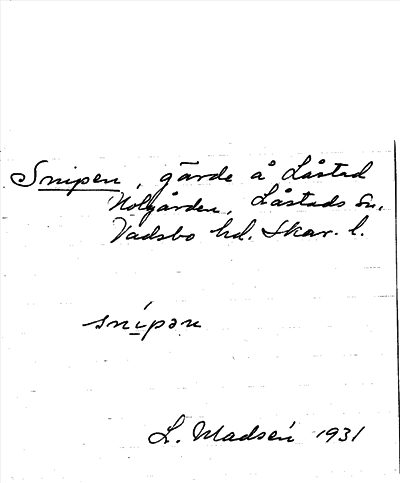 Snipen, gärde å Låstad
Holgården, Låstads sn.
Vadsbo hd. Skar. l.
snípən
L. Madsén 1931